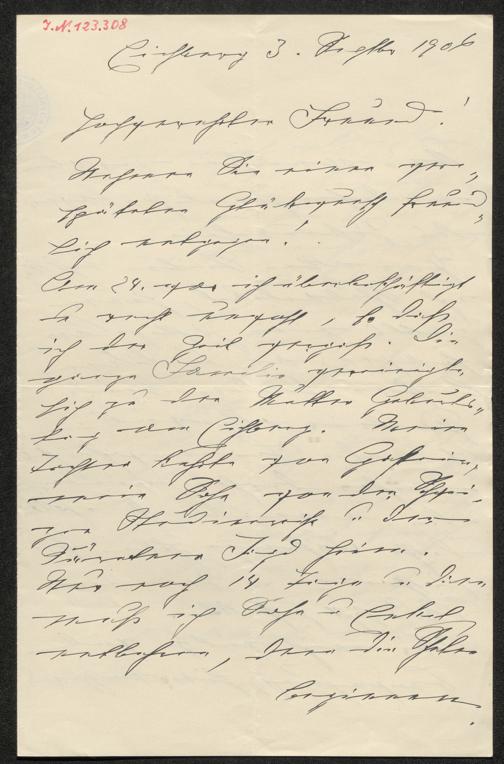 I.N. 123.308
Eichberg 3. Septbr 1906
Hochgeehrter Freund!
Nehmen Sie einen ver„
späteten Glückwunsch freund„
lich entgegen!
Am 24. war ich überbeschäftigt
u recht, so daß
ich der Zeit vergaß. Die
ganze Familie vereinigte
sich zu der Mutter Geburts„
tag am Eichberg. Meine
Tochter kehrte von Gastein,
mein Sohn von der Schwei„
zer Studienreise u den
Jagd heim.
Nur noch 14 Tage u dann
muß ich Sohn u Enkel
entbehren, denn die Schulen
beginnen.